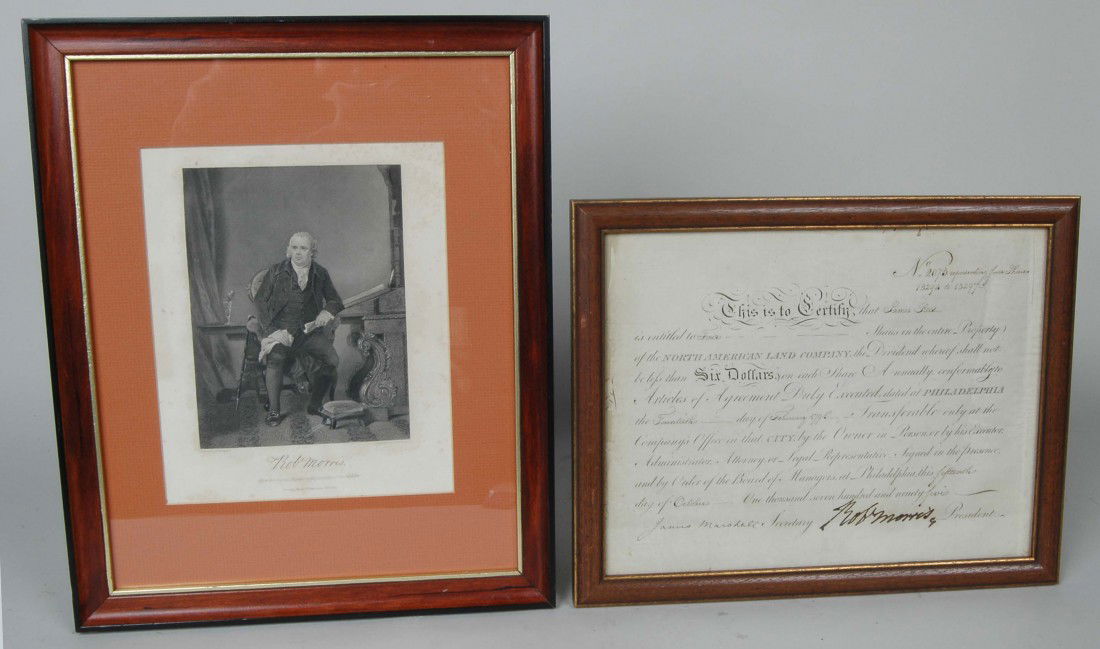 Robt Morris.
No 2073 representing four Shares
13294 to 13297
This is to Certify, that James
is entitled to four Shares in the entire Property
of the NORTH AMERICAN LAND COMPANY, the Dividend whereof shall not
be less than Six Dollars, on each Share Annually, conformably to
Articles of Agreement Duly Executed, dated at PHILADELPHIA
the Twentieth day of February 1795 Transferable only at the
Company's Office in that CITY, by the Owner in Person, or by his Executor
Administrator, Attorney, or Legal Representative. Signed in the presence
and by Order of the Board of Managers, at Philadelphia, this fifteenth
day of October One thousand seven hundred and ninety five
James Marshall Secretary Robt Morris President